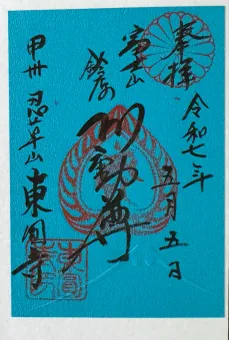 奉拝
令和七年
五月五日
富士山
不動尊
甲州 忍草山 東圓寺